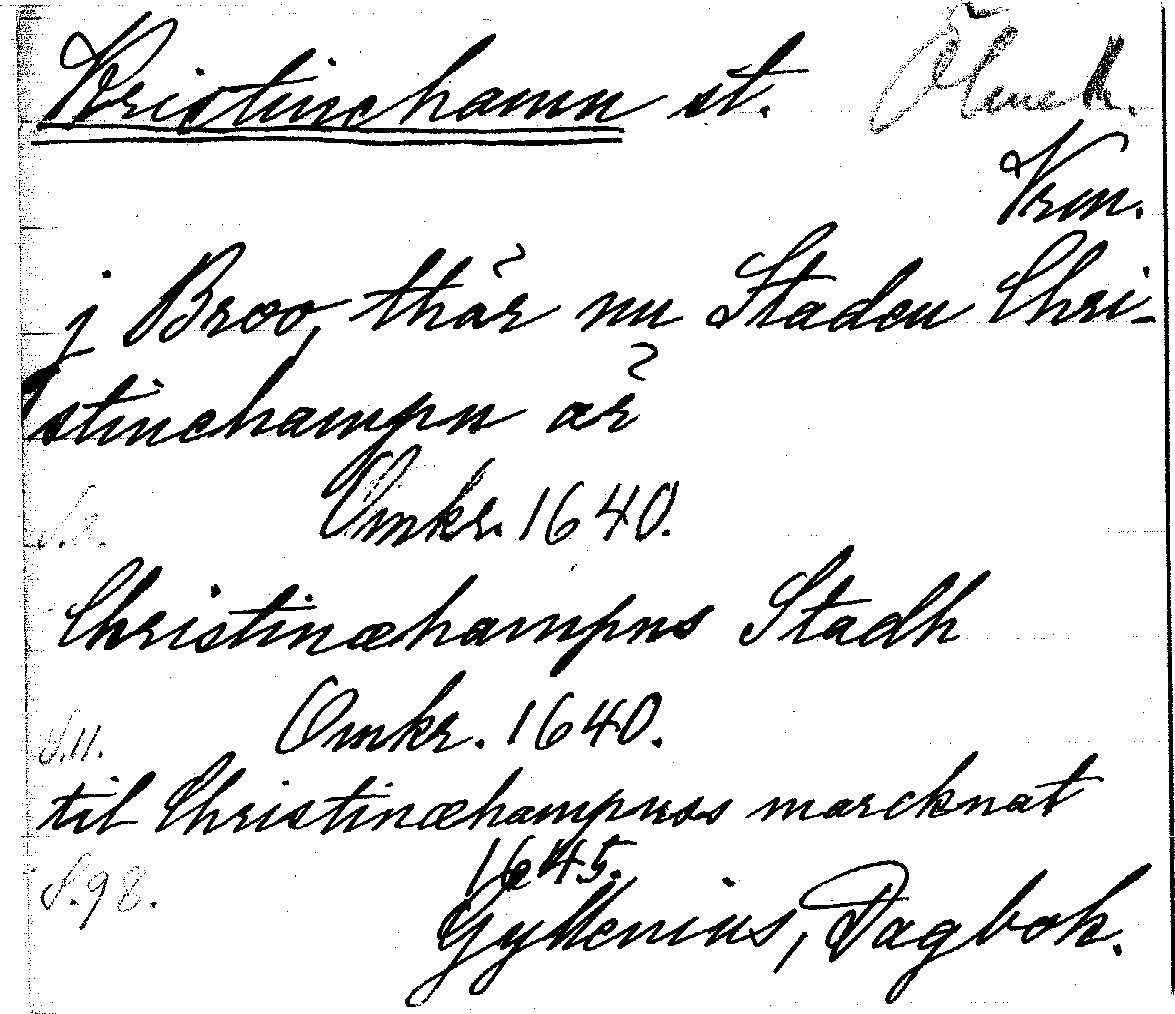 Kristinehamn st. Ölmeh.
Vrm.
j Broo, thär nu Staden Chri-
stinehampn är
Omkr. 1640.
S.8.
Christinæhampns Stadh
Omkr. 1640.
S.11.
til Christinæhampnss marcknat
1645.
S.98.
Gyllenius, Dagbok.